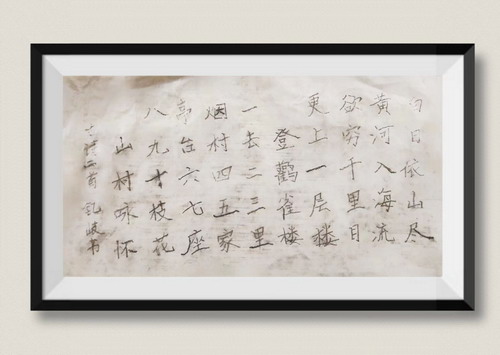 白日依山尽
黄河入海流
欲穷千里目
更上一层楼
登鹳雀楼
一去二三里
烟村四五家
亭台六七座
八九十枝花
山村咏怀
古诗二首 书